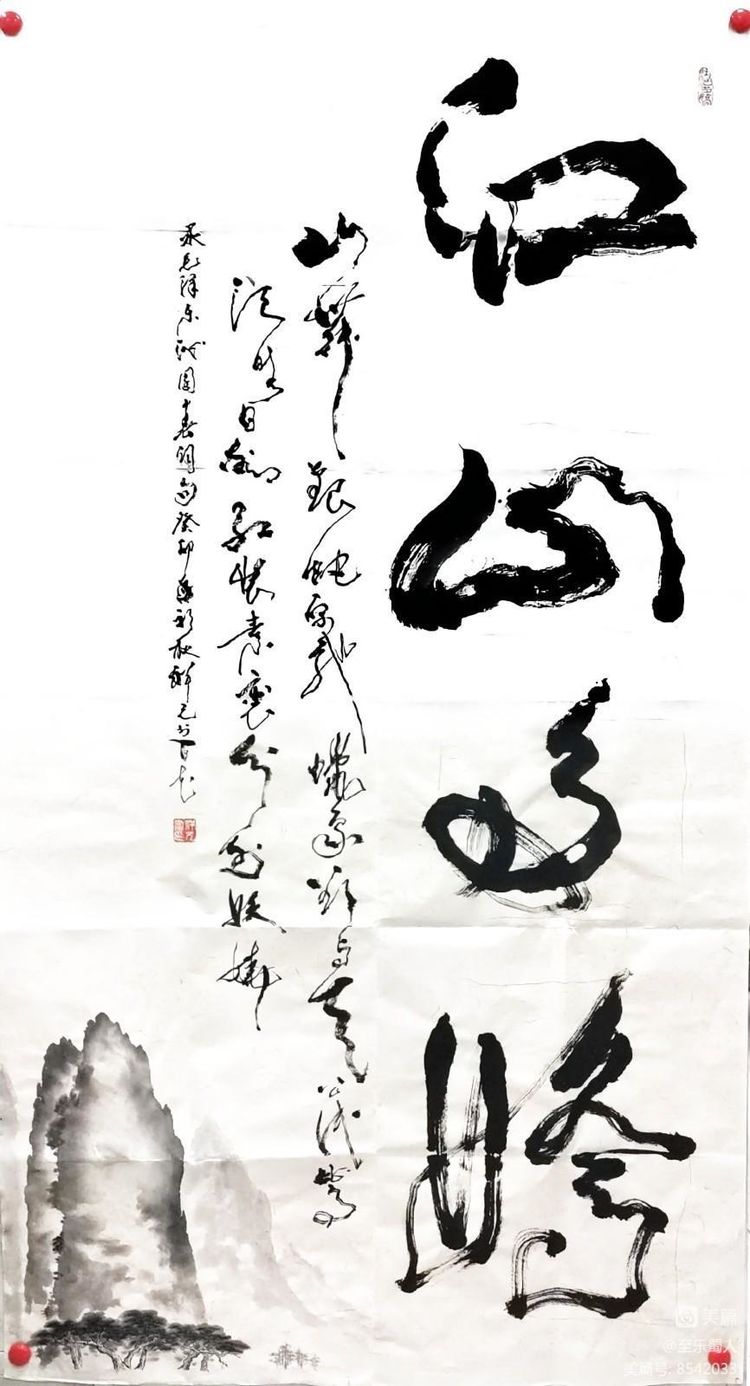 江山多嬌
山舞银蛇原驰蠟象欲与天公试比高
须晴日看红装素裹分外妖娆
录毛泽东沁园春词句癸卯年初秋
美篇
@至乐聞人
美篇号: 8542033